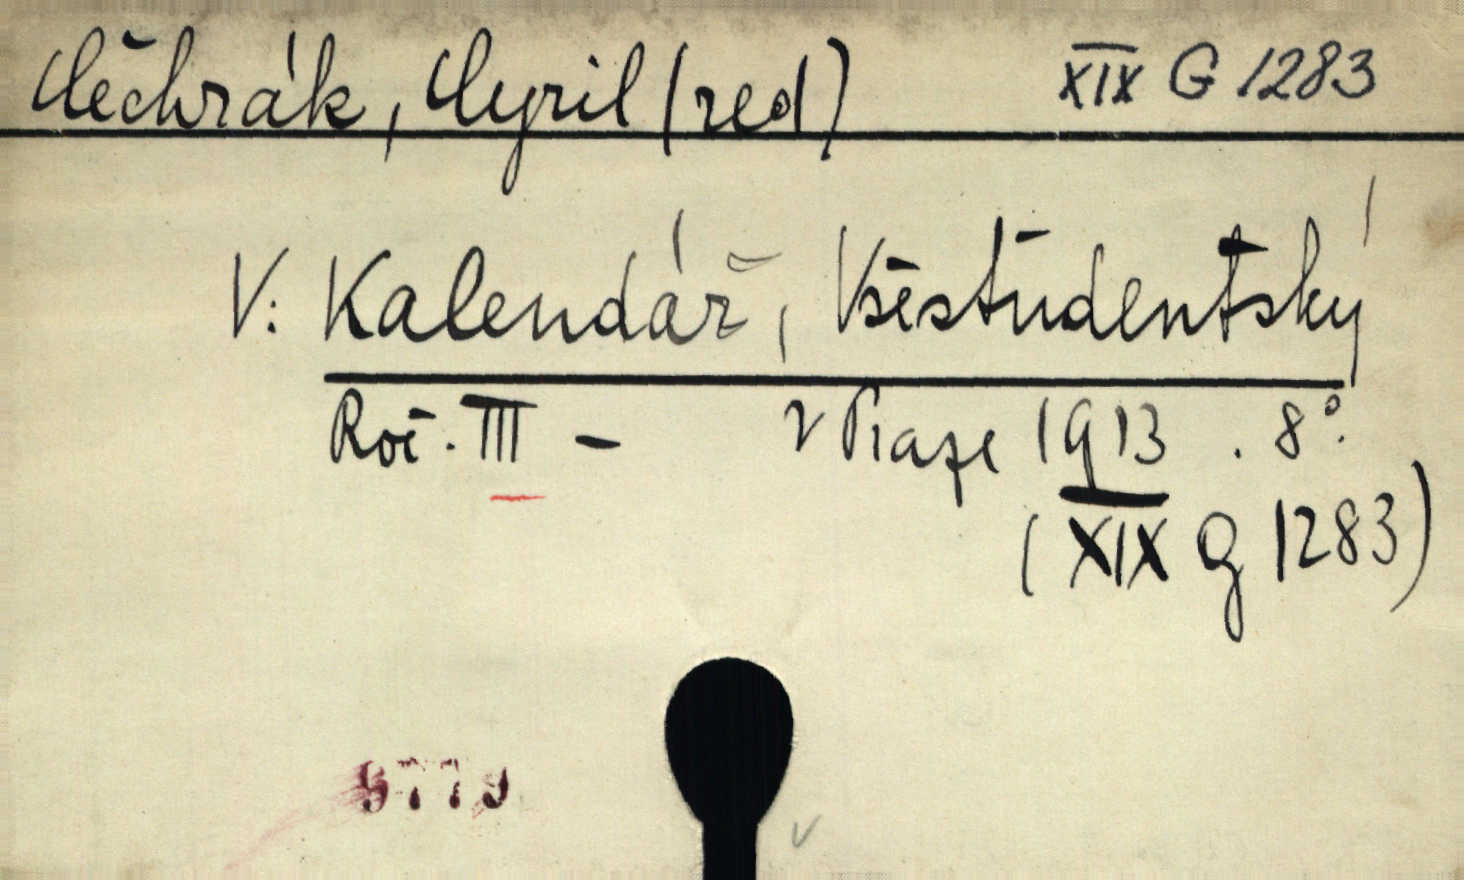 Čechrák, Cyril (red) XIX G 1283
V: Kalendář, Všestudentský
Roč. III – V Praze 1913 . 8°.
(XIX G 1283)
9779